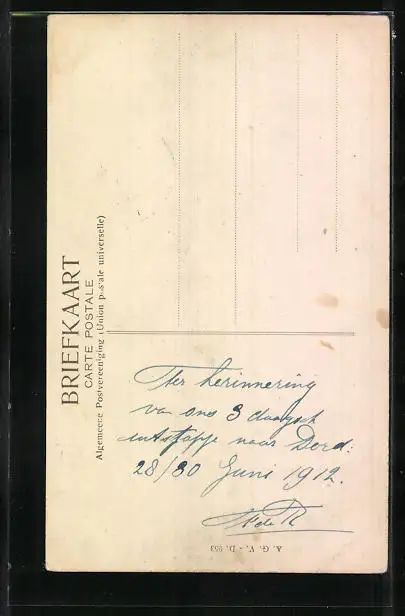 BRIEFKAART
CARTE POSTALE
Algemeene Postvereeniging (Union postale universelle)
Ter herinnering
van ons 3 daagsch
uitstapje naar Dord:
28/30 Juni 1912.
A. G. V. - D. 953